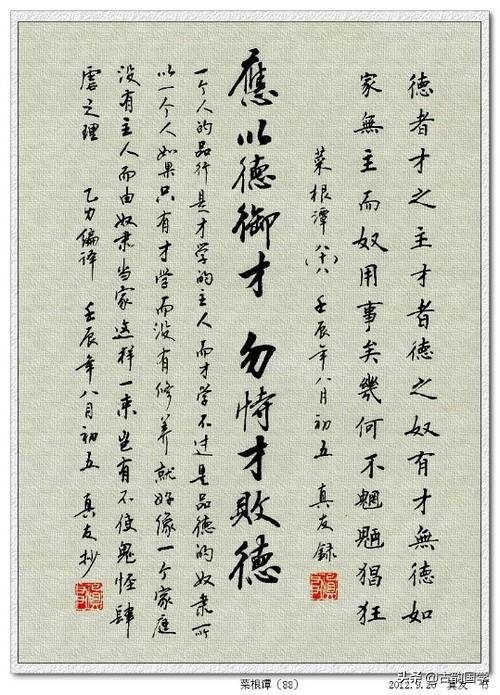 德者才之主才者德之奴有才無德如
家無主而奴用事矣幾何不魍魎猖狂
菜根譚(八十八) 壬辰年八月初五 真友録
應以德御才 勿恃才敗德
一个人的品行是才学的主人而才学不过是品德的奴隶所
以一个人如果只有才学而没有修养就好像一个家庭
没有主人而由奴隶当家这样一来岂有不使鬼怪肆
虐之理 乙力偏译 壬辰年八月初五 真友抄
菜根谭（88）
2012.9.20 真友 书
头条@古韵国学